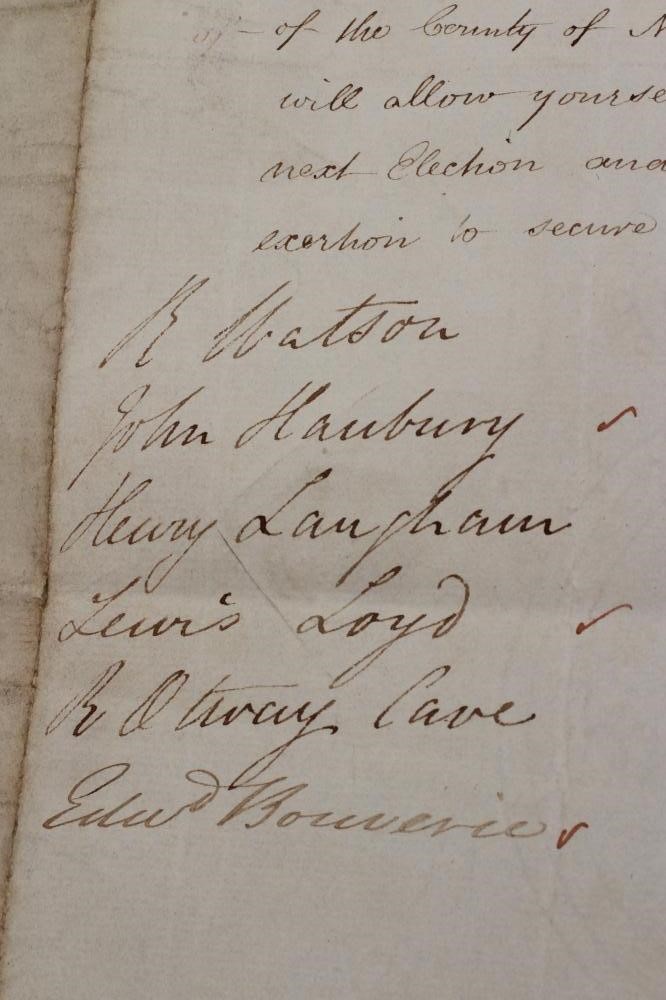 of the County of N
will allow yourse
next Election and
exertion to secure
R Watson
John Hanbury
Henry Langham
Lewis Loyd
R Otway Cave
Edwd Bouverie